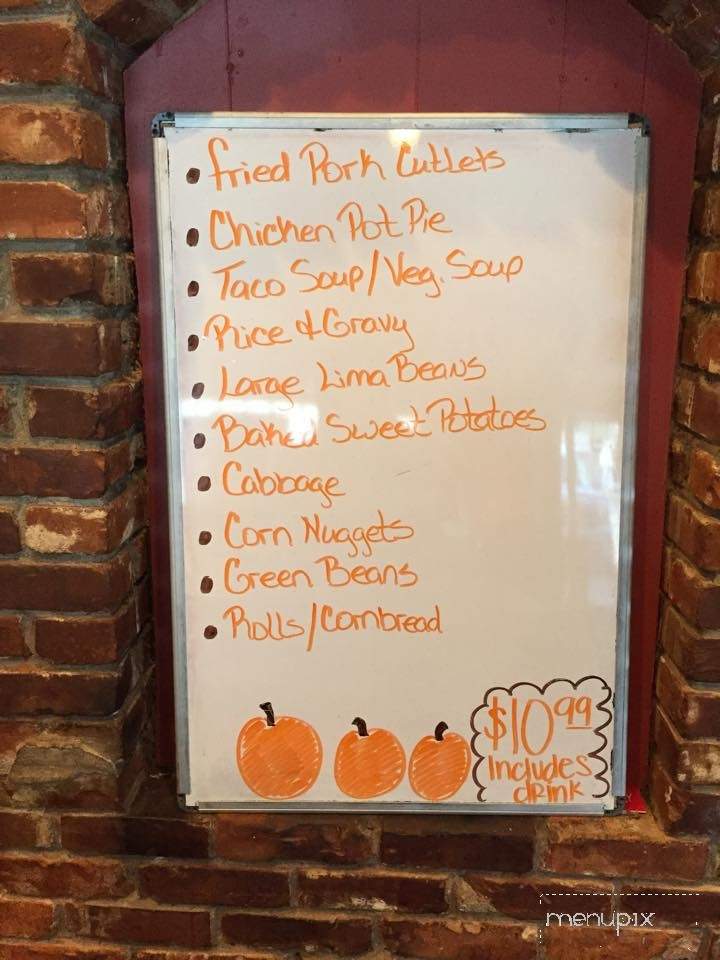 • Fried Pork Cutlets
• Chicken Pot Pie
• Taco Soup/Veg. Soup
• Rice & Gravy
• Large Lima Beans
• Baked Sweet Potatoes
• Cabbage
• Corn Nuggets
• Green Beans
• Rolls/Cornbread
$10.99
Includes
drink
menupix